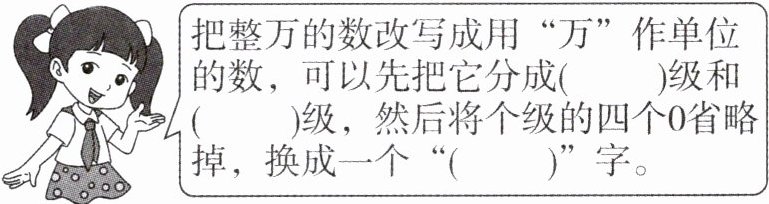 把整万的数改写成用“万”作单位
的数，可以先把它分成(　　)级和
(　　)级，然后将个级的四个0省略
掉，换成一个“(　　)”字。